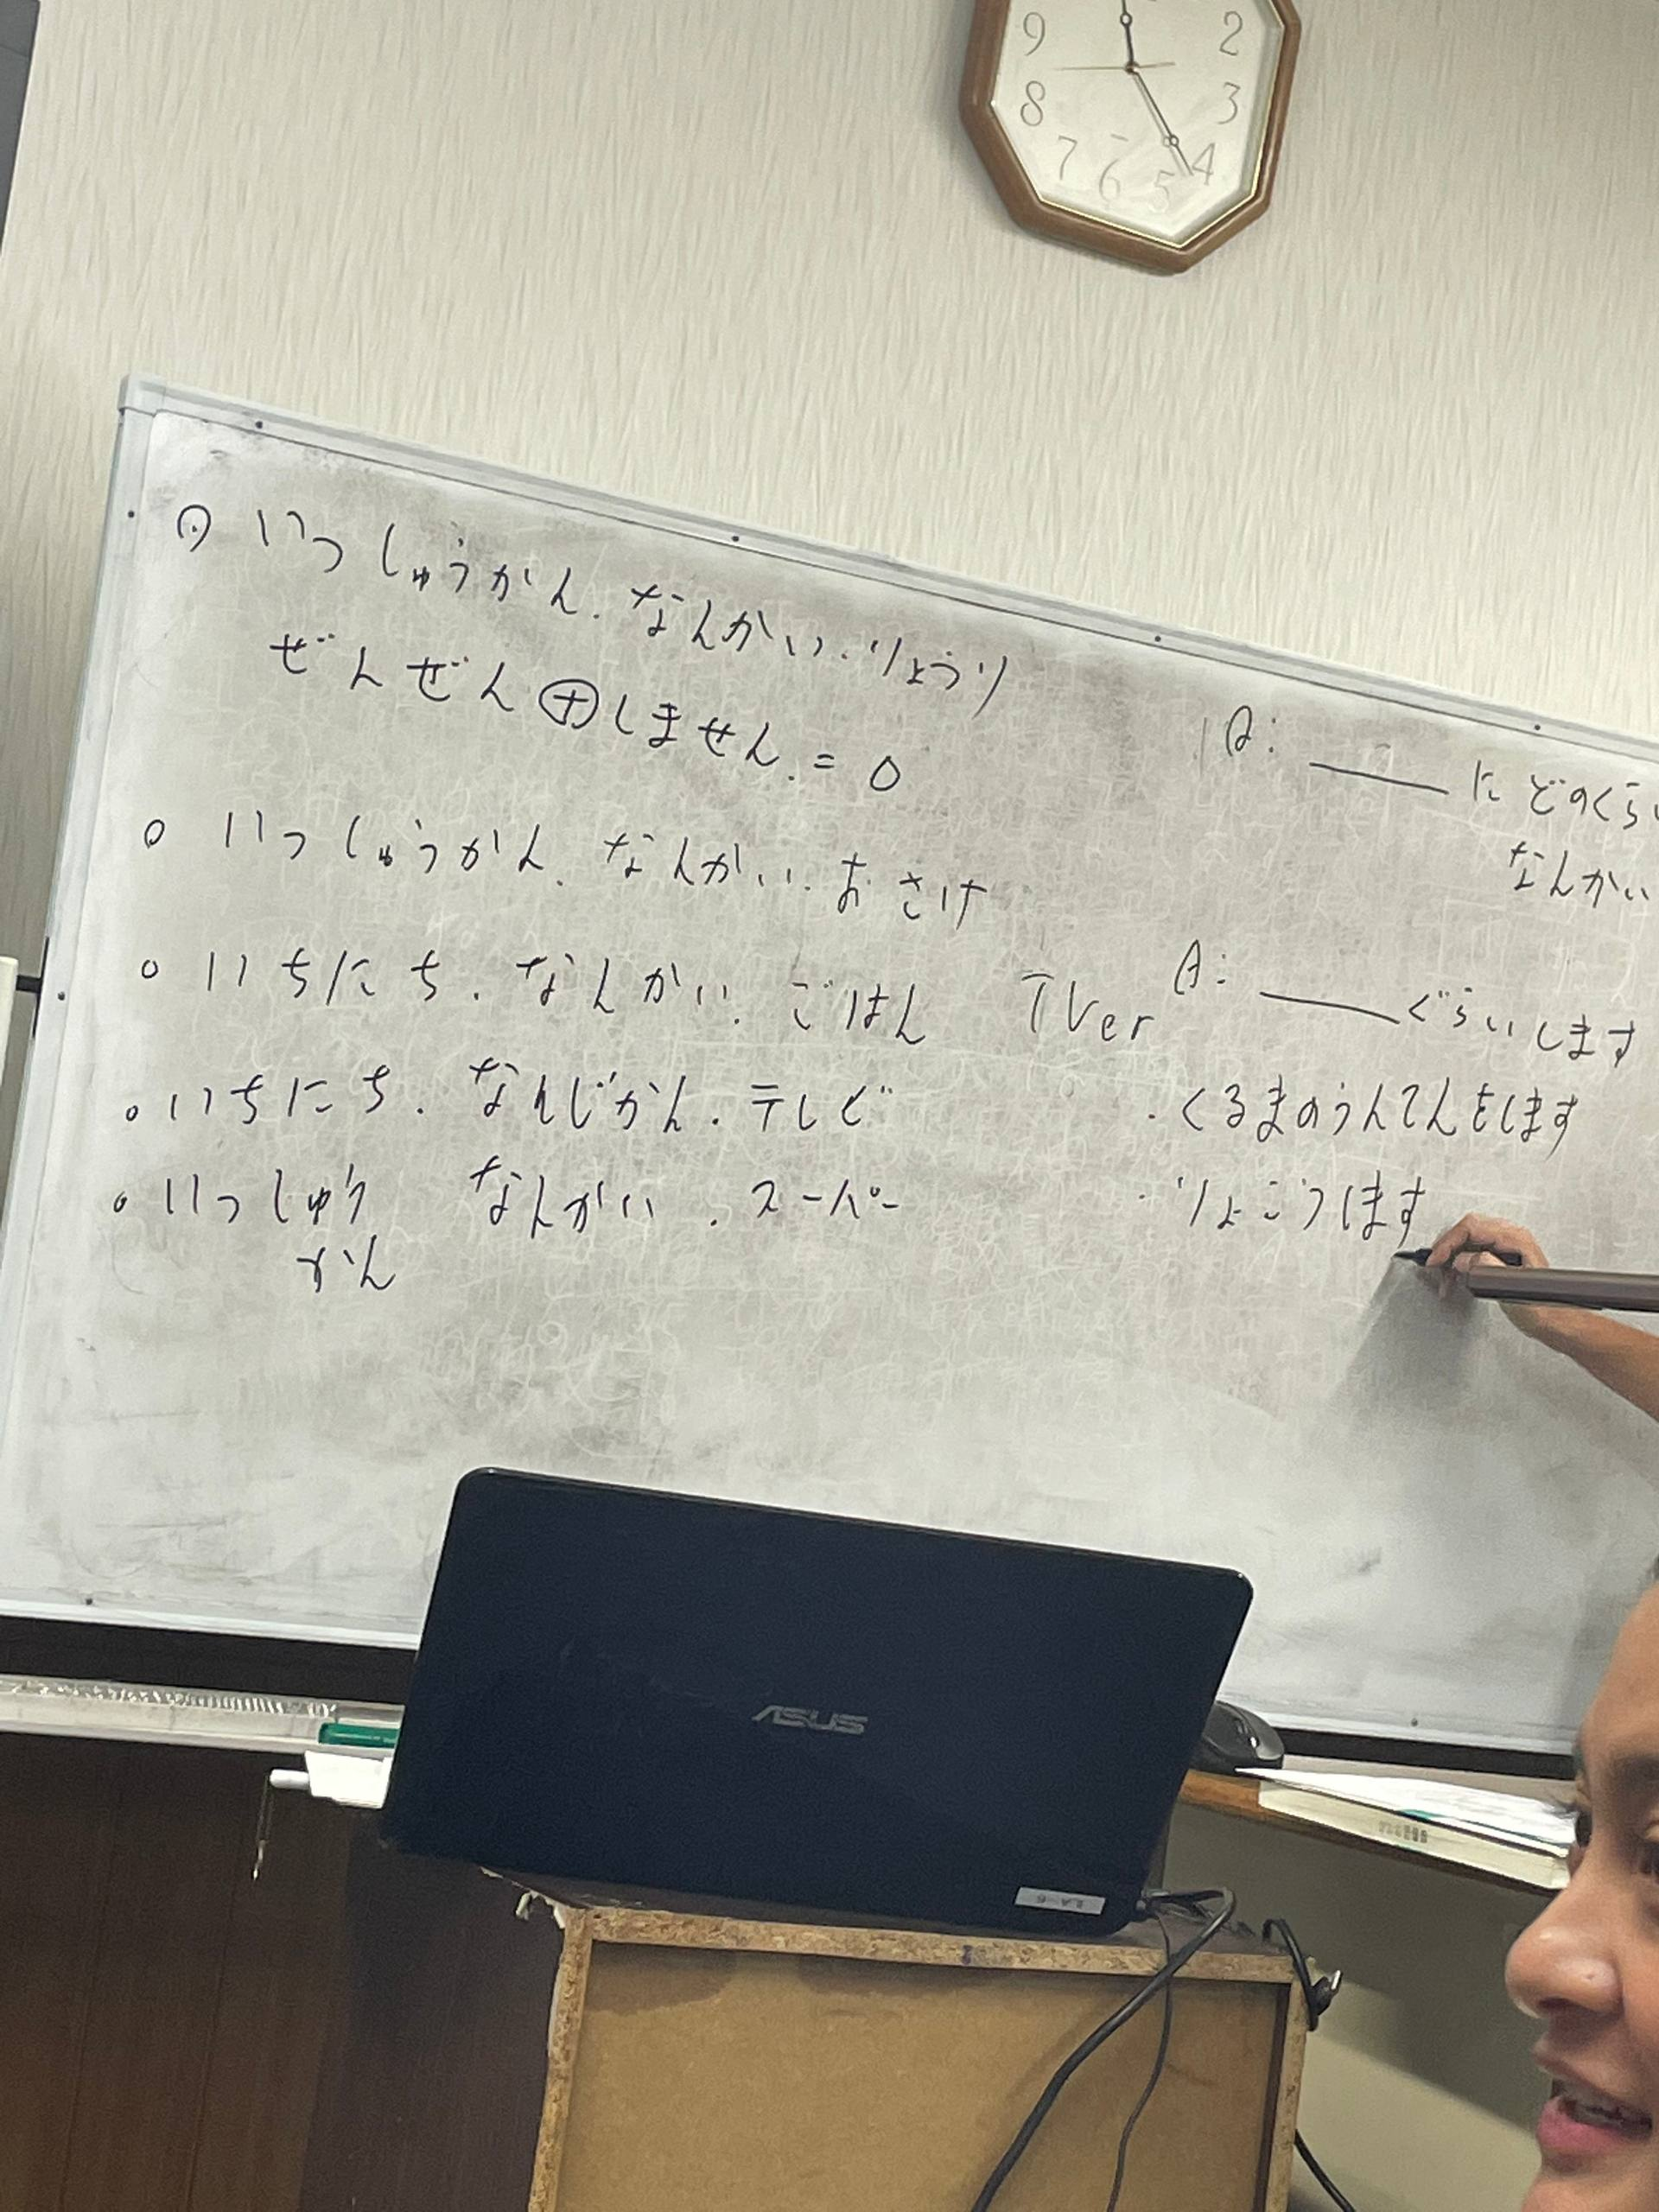 いっしゅうかん.なんかい.りょうり
ぜんぜん⊕しません.=0
いっしゅうかん.なんかい.おさけ
いちにち.なんかい.ごはん
いちにち.なんじかん.テレビ
いっしゅう なんかい.スーパー
かん
TVer
Q: ___にどのくらい
なんかい
A: ___ぐらいします
・くるまのうんてんをします
・りょこうします
9 2
8 3
7 6 5 4
ASUS